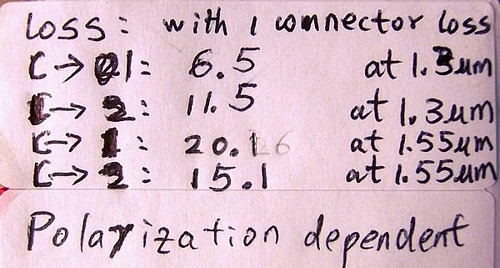 Loss: with 1 connector loss
C → 1: 6.5 at 1.3µm
C → 2: 11.5 at 1.3µm
C → 1: 20.1 at 1.55µm
C → 2: 15.1 at 1.55µm
Polarization dependent